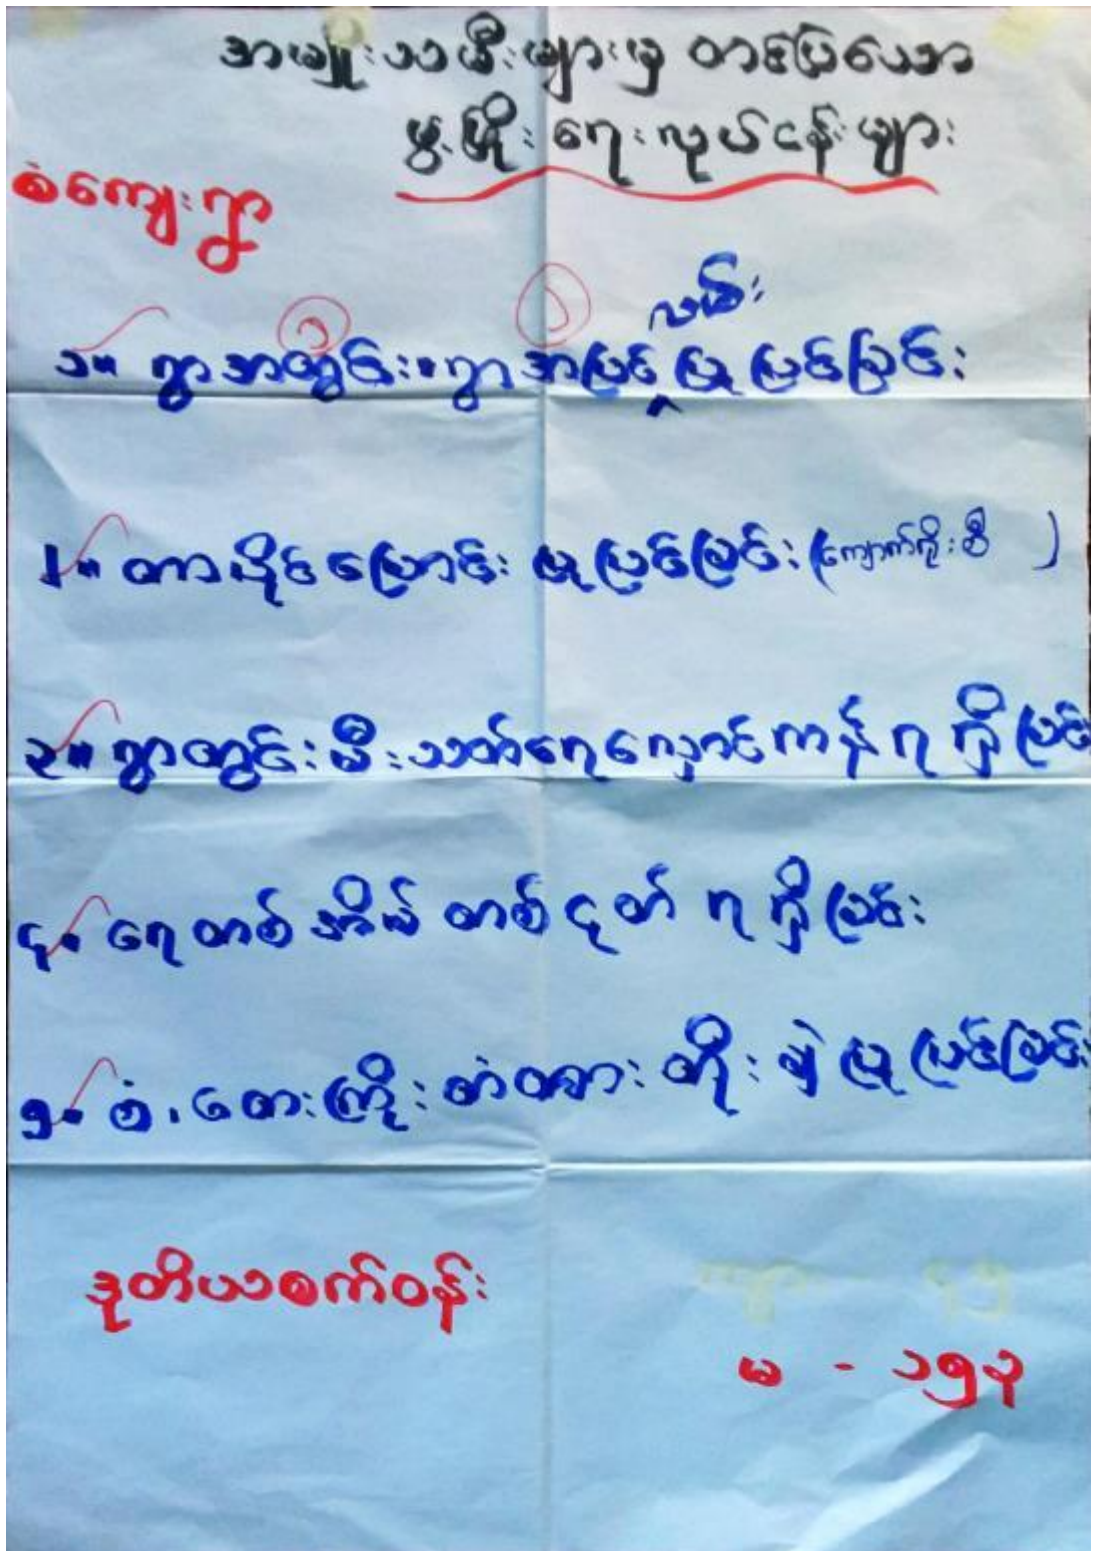 အမျိုးသမီးများမှ တင်ပြသော
ဖွံ့ဖြိုးရေးလုပ်ငန်းများ
စံကျေးရွာ
၁
၁
လမ်း
၁။ ရွာအတွင်း။ရွာအပြင် ပြုပြင်ခြင်း
၂။ တာပိုင်မြောင်း ပြုပြင်ခြင်း (ကျောက်ကိုးစီ )
၃။ ရွာတွင်းမီးသတ်ရေလှောင်ကန်ရရှိခြင်း
၄။ ရေတစ်အိမ်တစ်ငုတ်ရရှိခြင်း
၅။ စံ၊ တေးကြိုးတံတား တိုးချဲ့ပြုပြင်ခြင်း
ဒုတိယစက်ဝန်း
မ - ၁၅၃